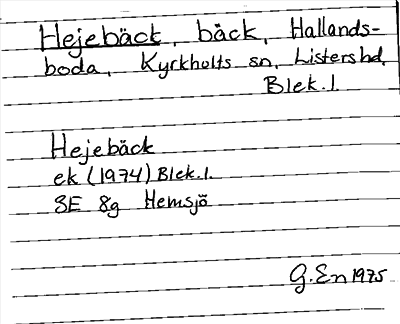 Hejebäck, bäck, Hallands-
boda, Kyrkhults sn, Listers hd,
Blek. l.
Hejebäck
ek (1974) Blek. l.
3E 8g Hemsjö
G. En 1975